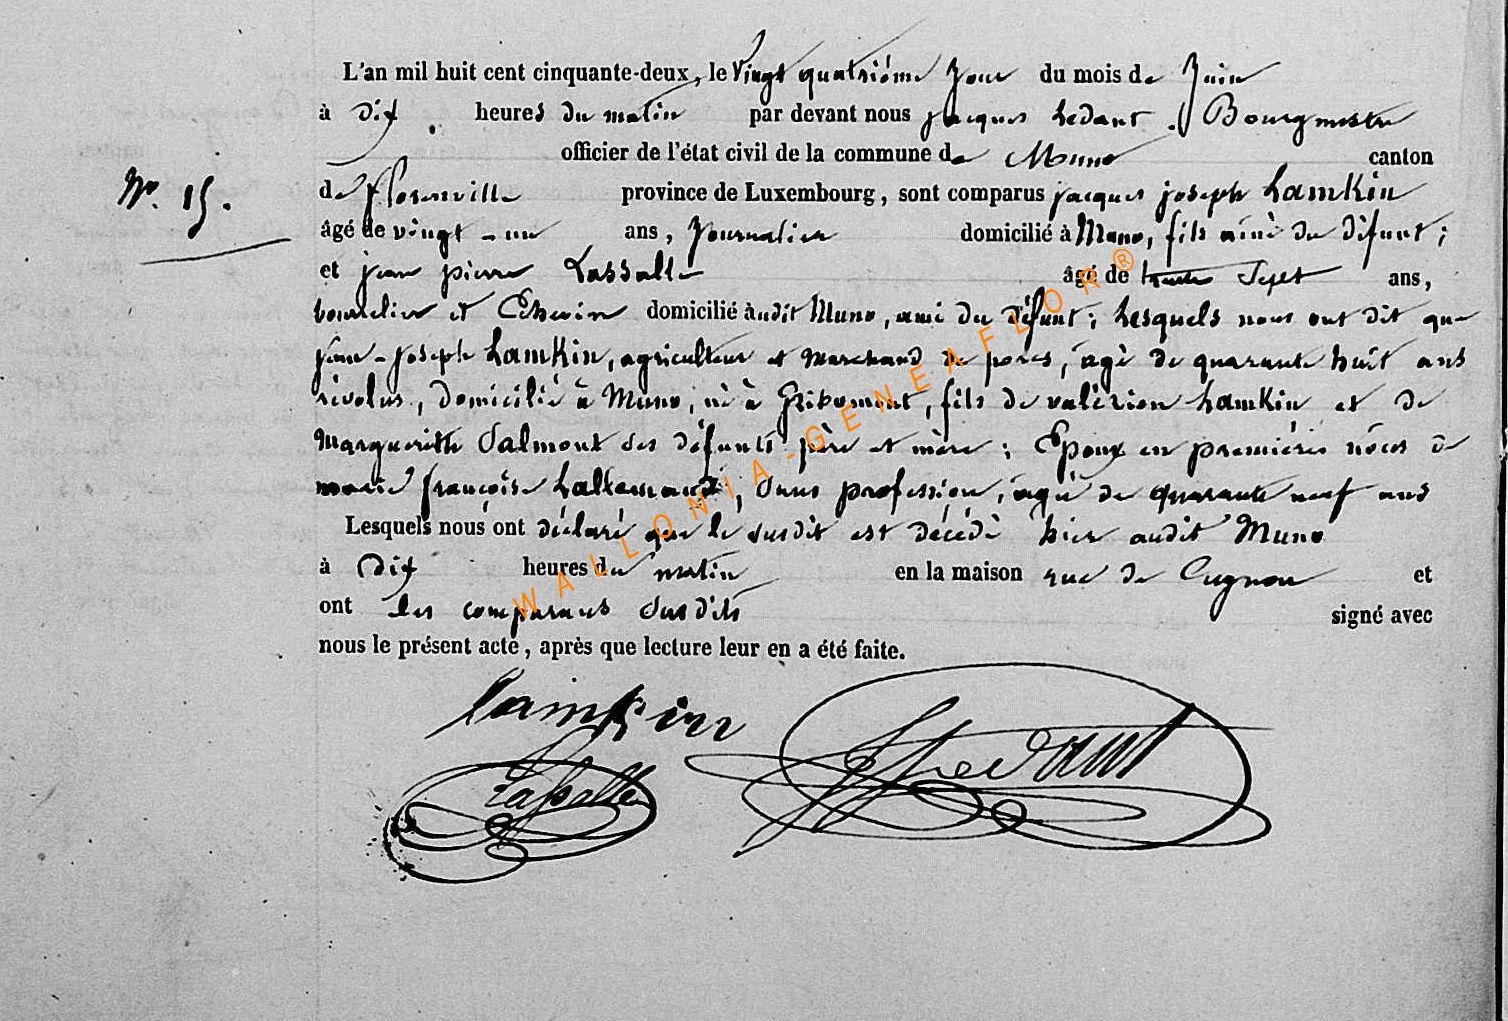 L'an mil huit cent cinquante-deux, le Vingt quatrième Jour du mois de Juin
à Dix heures du matin par devant nous jacques Ledant, Bourgmestre
officier de l'état civil de la commune de Muno canton
No. 15.
de florenville province de Luxembourg, sont comparus jacques joseph Lamkin
âgé de vingt-un ans, Journalier domicilié à Muno, fils ainé du défunt;
et jean pierre Lassalle âgé de trente Sept ans,
bourrelier et Echevin domicilié àudit Muno, ami du défunt; Lesquels nous ont dit que
jean-joseph Lamkin, agriculteur et marchand de porcs, agé de quarante huit ans
révolus, domicilié à Muno, né à Gribomont, fils de valérien Lamkin et de
Marguerith Salmont des défunts père et mère; Epoux en premières nôces de
marie françoise Lallemand, Sans profession, agée de quarante neuf ans
Lesquels nous ont déclaré que le susdit est décédé hier audit Muno
à Dix heures du matin en la maison rue de Cugnon et
ont les comparans Susdits signé avec
nous le présent acte, après que lecture leur en a été faite.
Lamkin
JLedant
Lassalle
WALLONIA-GENEAFLOR®